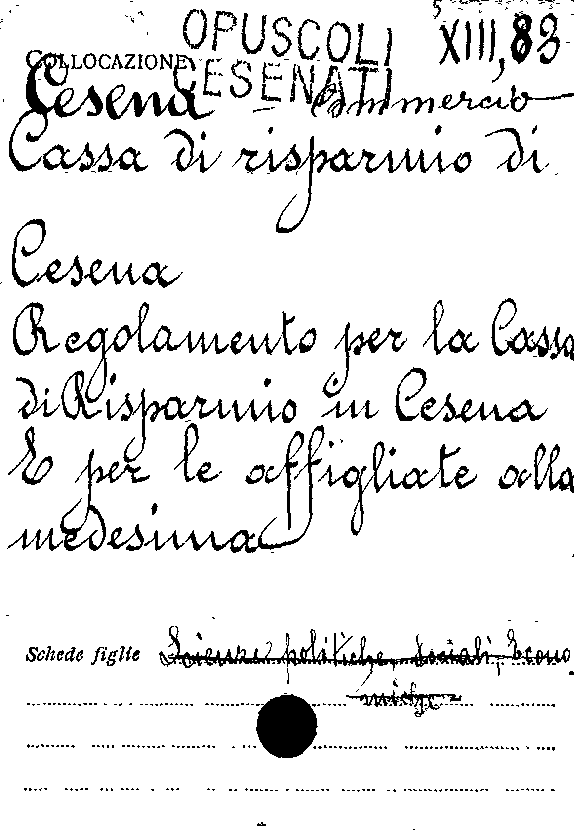 OPUSCOLI XIII, 83
COLLOCAZIONE CESENATI
Cesena - Commercio
Cassa di risparmio di
Cesena
Regolamento per la Cassa
di Risparmio in Cesena
E per le affigliate alla
medesima
Schede figlie Scienze politiche, Sociali, Econo
miche